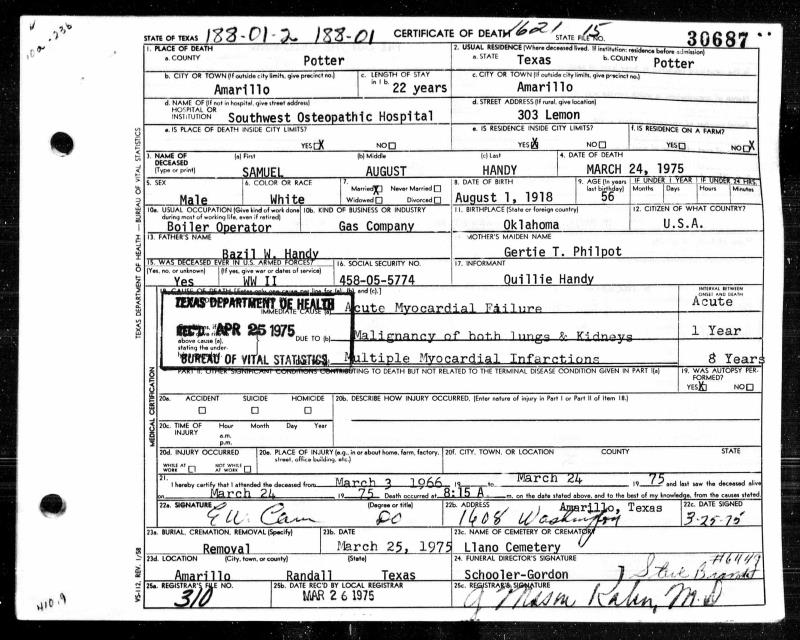 10a -236
STATE OF TEXAS 188-01-2 188-01 CERTIFICATE OF DEATH 1621 STATE FILE NO. 15 30687
1. PLACE OF DEATH
a. COUNTY Potter
2. USUAL RESIDENCE (Where deceased lived. If institution: residence before admission)
a. STATE Texas b. COUNTY Potter
b. CITY OR TOWN (If outside city limits, give precinct no.) Amarillo
c. LENGTH OF STAY in 1 b. 22 years
c. CITY OR TOWN (If outside city limits, give precinct no.) Amarillo
d. NAME OF (If not in hospital, give street address) HOSPITAL OR INSTITUTION Southwest Osteopathic Hospital
d. STREET ADDRESS (If rural, give location) 303 Lemon
e. IS PLACE OF DEATH INSIDE CITY LIMITS? YES X NO
e. IS RESIDENCE INSIDE CITY LIMITS? YES X NO
f. IS RESIDENCE ON A FARM? YES NO X
3. NAME OF DECEASED (Type or print)
(a) First SAMUEL (b) Middle AUGUST (c) Last HANDY
4. DATE OF DEATH MARCH 24, 1975
5. SEX Male
6. COLOR OR RACE White
7. Married X Never Married Widowed Divorced
8. DATE OF BIRTH August 1, 1918
9. AGE (In years last birthday) 56
IF UNDER 1 YEAR Months Days
IF UNDER 24 HRS. Hours Minutes
10a. USUAL OCCUPATION (Give kind of work done during most of working life, even if retired) Boiler Operator
10b. KIND OF BUSINESS OR INDUSTRY Gas Company
11. BIRTHPLACE (State or foreign country) Oklahoma
12. CITIZEN OF WHAT COUNTRY? U.S.A.
13. FATHER'S NAME Bazil W. Handy
MOTHER'S MAIDEN NAME Gertie T. Philpot
15. WAS DECEASED EVER IN U.S. ARMED FORCES? (Yes, no, or unknown) Yes (If yes, give war or dates of service) WW II
16. SOCIAL SECURITY NO. 458-05-5774
17. INFORMANT Quillie Handy
18. CAUSE OF DEATH [Enter only one cause per line for (a), (b), and (c).]
INTERVAL BETWEEN ONSET AND DEATH
IMMEDIATE CAUSE (a) Acute Myocardial Failure Acute
DUE TO (b) Malignancy of both lungs & Kidneys 1 Year
Multiple Myocardial Infarctions 8 Years
above cause (a), stating the under-
TEXAS DEPARTMENT OF HEALTH
REC'D APR 25 1975
BUREAU OF VITAL STATISTICS
PART II. OTHER SIGNIFICANT CONDITIONS CONTRIBUTING TO DEATH BUT NOT RELATED TO THE TERMINAL DISEASE CONDITION GIVEN IN PART I(a)
19. WAS AUTOPSY PERFORMED? YES X NO
20a. ACCIDENT SUICIDE HOMICIDE
20b. DESCRIBE HOW INJURY OCCURRED. (Enter nature of injury in Part I or Part II of Item 18.)
20c. TIME OF INJURY Hour a.m. p.m. Month Day Year
20d. INJURY OCCURRED WHILE AT WORK NOT WHILE AT WORK
20e. PLACE OF INJURY (e.g., in or about home, farm, factory, street, office building, etc.)
20f. CITY, TOWN, OR LOCATION COUNTY STATE
21. I hereby certify that I attended the deceased from March 3 1966, 19 to March 24 19 75 and last saw the deceased alive
on March 24 19 75 Death occurred at 8:15 A m. on the date stated above, and to the best of my knowledge, from the causes stated.
22a. SIGNATURE E W. Cain (Degree or title) DO
22b. ADDRESS Amarillo, Texas 1608 Washington
22c. DATE SIGNED 3-25-75
23a. BURIAL, CREMATION, REMOVAL (Specify) Removal
23b. DATE March 25, 1975
23c. NAME OF CEMETERY OR CREMATORY Llano Cemetery
23d. LOCATION (City, town, or county) (State) Amarillo Randall Texas
24. FUNERAL DIRECTOR'S SIGNATURE Schooler-Gordon #6449
25a. REGISTRAR'S FILE NO. 310
25b. DATE REC'D BY LOCAL REGISTRAR MAR 26 1975
25c. REGISTRAR'S SIGNATURE J Mason Kahn, M.D
TEXAS DEPARTMENT OF HEALTH — BUREAU OF VITAL STATISTICS
MEDICAL CERTIFICATION
VS-112, REV. 1/58
410.9